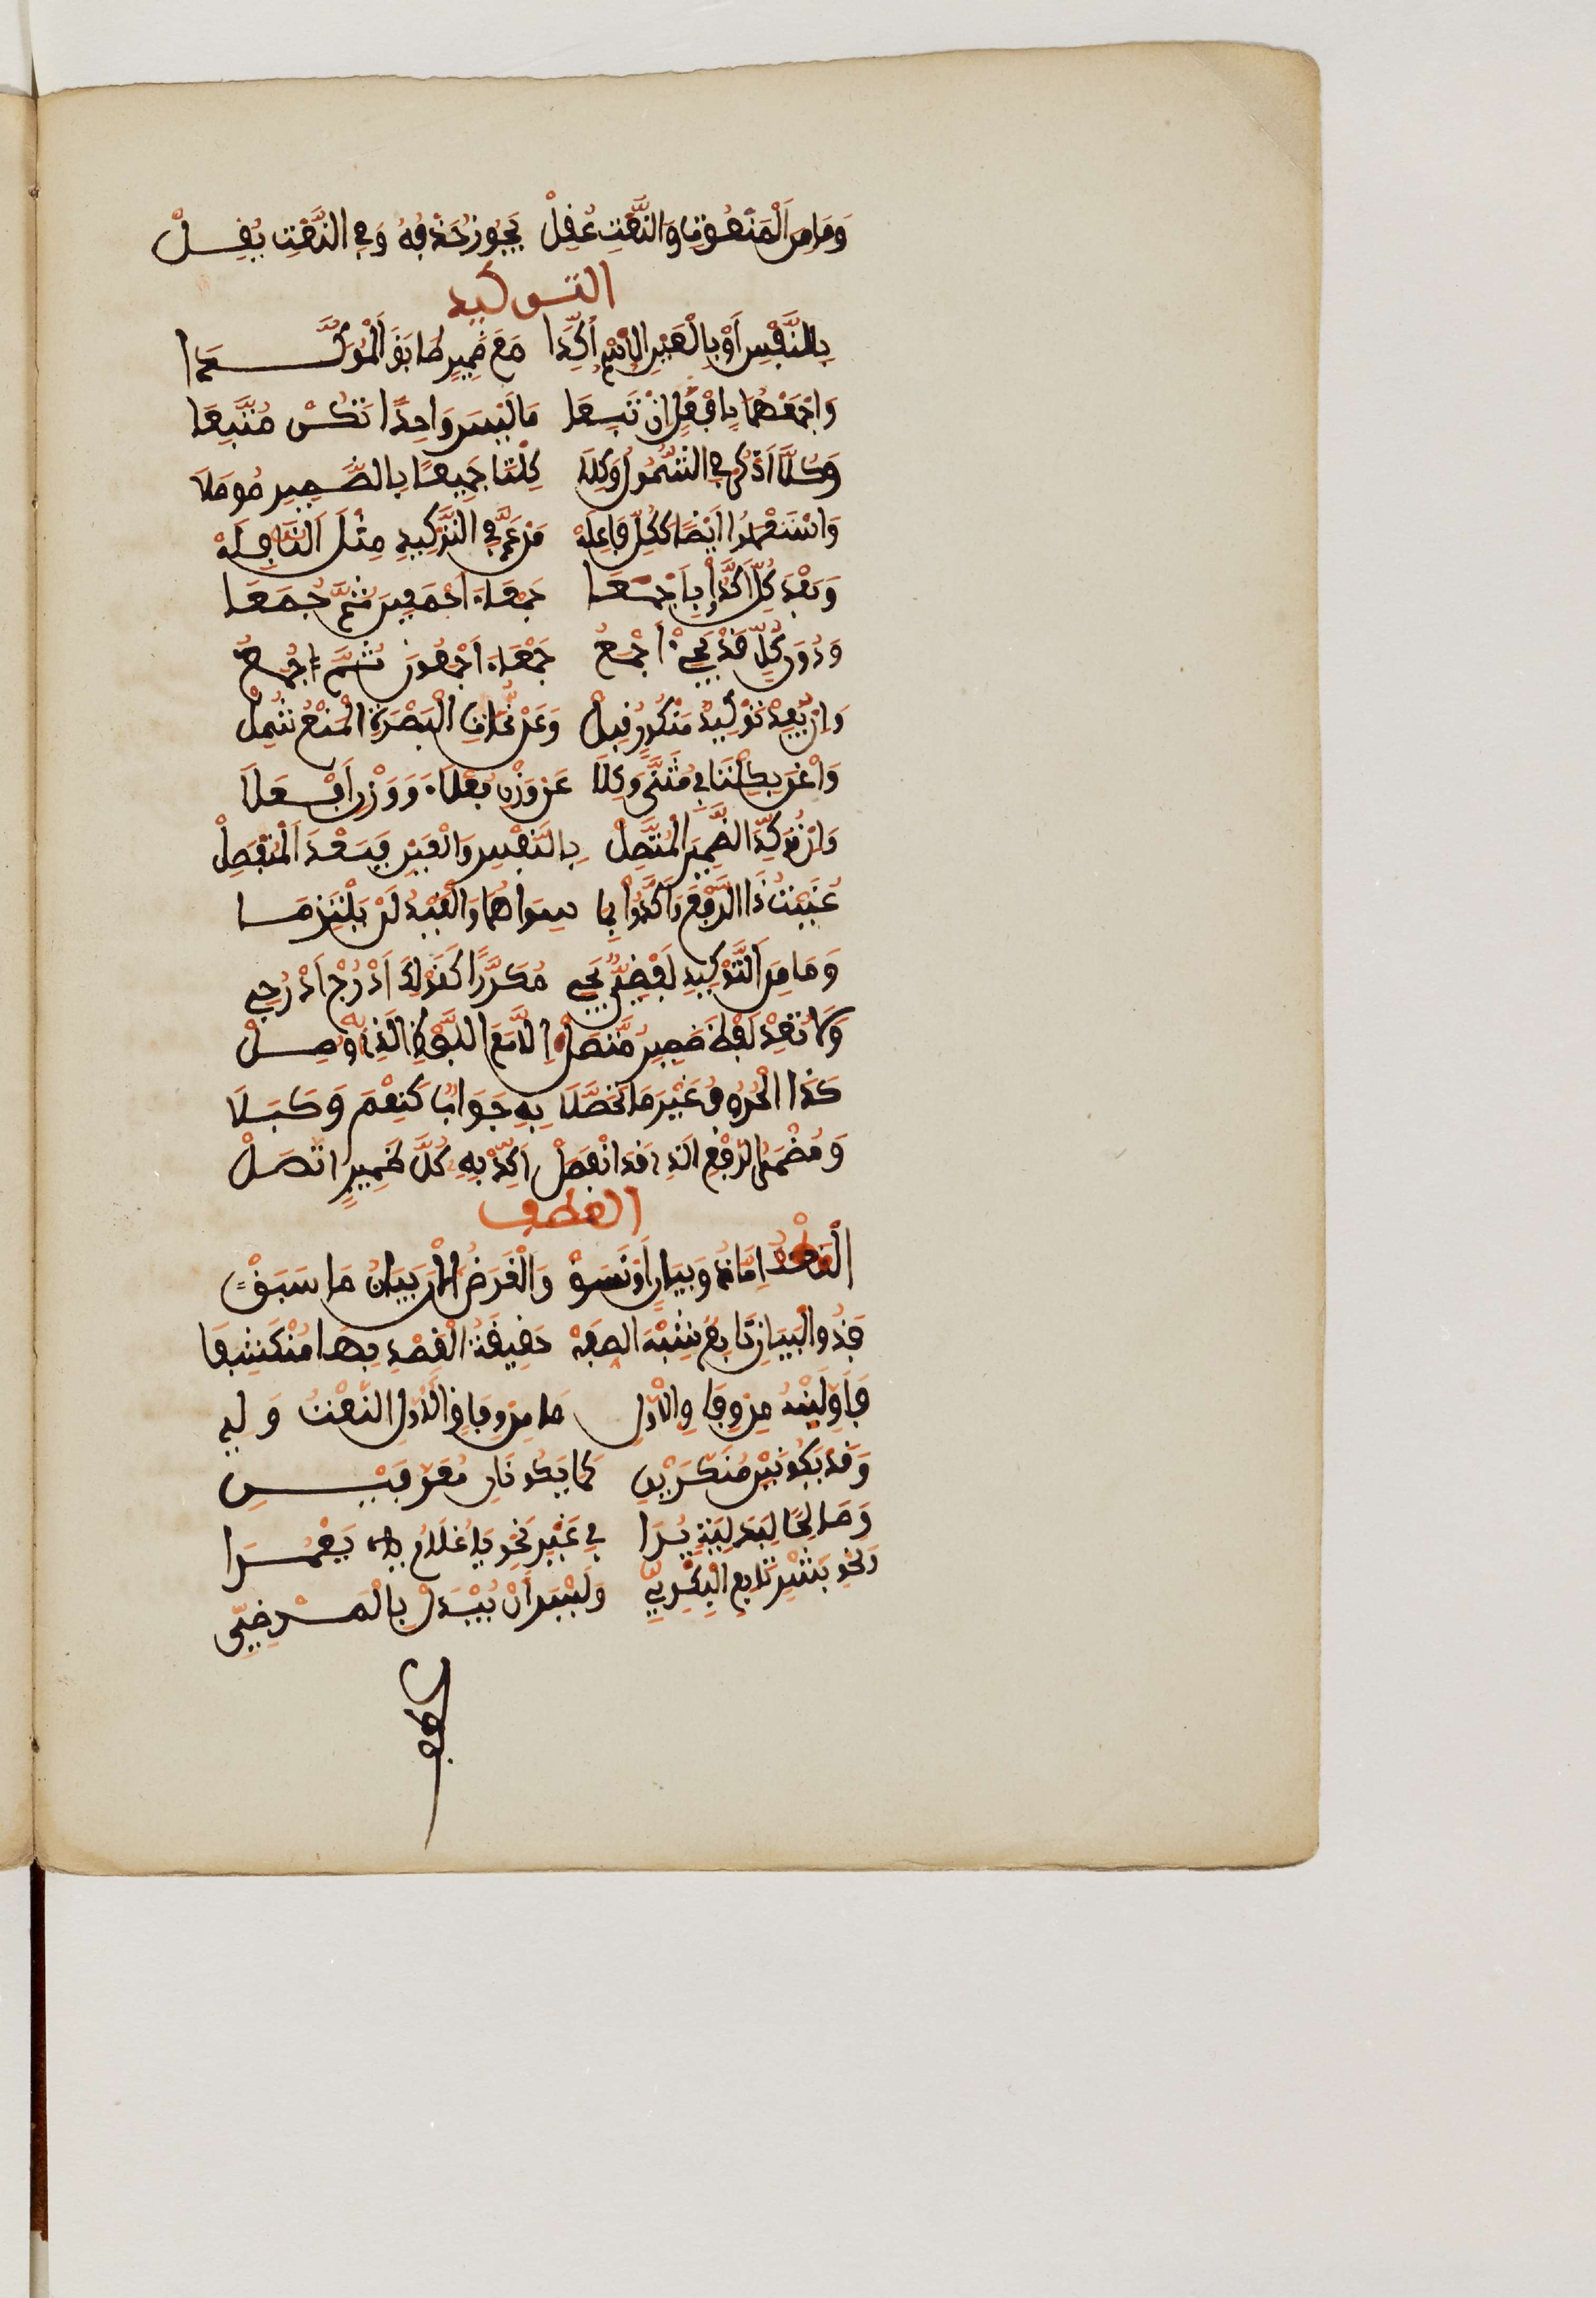 وَمَا مِنَ الْمَنْعُوتِ وَالنَّعْتِ عُقِلْ يَجُوزُ حَذْفُهُ وَفِي النَّعْتِ يَقِلْ
التوكيد
بِالنَّفْسِ أَوْ بِالْعَيْنِ الِاسْمُ أُكِّدَا مَعَ ضَمِيرٍ طَابَقَ الْمُؤَكَّدَا
وَاجْمَعْهُمَا بِأَفْعُلٍ إِنْ تَبِعَا مَا لَيْسَ وَاحِدًا تَكُنْ مُتَّبِعَا
وَكُلًّا اذْكُرْ فِي الشُّمُولِ وَكِلَا كِلْتَا جَمِيعًا بِالضَّمِيرِ مُوصَلَا
وَاسْتَعْمَلُوا أَيْضًا كَكُلٍّ فَاعِلَهْ مِنْ عَمَّ فِي التَّوْكِيدِ مِثْلَ النَّافِلَهْ
وَبَعْدَ كُلٍّ أَكَّدُوا بِأَجْمَعَا جَمْعَاءَ أَجْمَعِينَ ثُمَّ جُمَعَا
وَدُونَ كُلٍّ قَدْ يَجِيءُ أَجْمَعُ جَمْعَاءُ أَجْمَعُونَ ثُمَّ جُمَعُ
وَإِنْ يُفِدْ تَوْكِيدُ مَنْكُورٍ قُبِلْ وَعَنْ نُحَاةِ الْبَصْرَةِ الْمَنْعُ شَمِلْ
وَاغْنَ بِكِلْتَا فِي مُثَنًّى وَكِلَا عَنْ وَزْنِ فَعْلَاءَ وَوَزْنِ أَفْعَلَا
وَإِنْ تُؤَكِّدِ الضَّمِيرَ الْمُتَّصِلْ بِالنَّفْسِ وَالْعَيْنِ فَبَعْدَ الْمُنْفَصِلْ
عَنَيْتُ ذَا الرَّفْعِ وَأَكَّدُوا بِمَا سِوَاهُمَا وَالْقَيْدُ لَنْ يُلْتَزَمَا
وَمَا مِنَ التَّوْكِيدِ لَفْظِيٌّ يَجِي مُكَرَّرًا كَقَوْلِكَ ادْرُجِ ادْرُجِي
وَلَا تُعِدْ لَفْظَ ضَمِيرٍ مُتَّصِلْ إِلَّا مَعَ اللَّفْظِ الَّذِي بِهِ وُصِلْ
كَذَا الْحُرُوفُ غَيْرَ مَا تَحَصَّلَا بِهِ جَوَابٌ كَنَعَمْ وَكَبَلَا
وَمُضْمَرُ الرَّفْعِ الَّذِي قَدِ انْفَصَلْ أَكِّدْ بِهِ كُلَّ ضَمِيرٍ اتَّصَلْ
العطف
الْعَطْفُ إِمَّا ذُو بَيَانٍ أَوْ نَسَقْ وَالْغَرَضُ الْآنَ بَيَانُ مَا سَبَقْ
فَذُو الْبَيَانِ تَابِعٌ شِبْهُ الصِّفَهْ حَقِيقَةُ الْقَصْدِ بِهَا مُنْكَشِفَا
فَأَوْلِيَنْهُ مِنْ وِفَاقِ الْأَوَّلِ مَا مِنْ وِفَاقِ الْأَوَّلِ النَّعْتُ وَلِي
وَقَدْ يَكُونَيْنِ مُنَكَّرَيْنِ كَمَا يَكُونَانِ مُعَرَّفَيْنِ
وَصَالِحًا لِبَدَلِيَّةٍ يُرَا فِي غَيْرِ نَحْوِ يَا غُلَامُ يَعْمُرَا
وَنَحْوِ بِشْرٍ تَابِعِ الْبَكْرِيِّ وَلَيْسَ أَنْ يُبْدَلَ بِالْمَرْضِيِّ